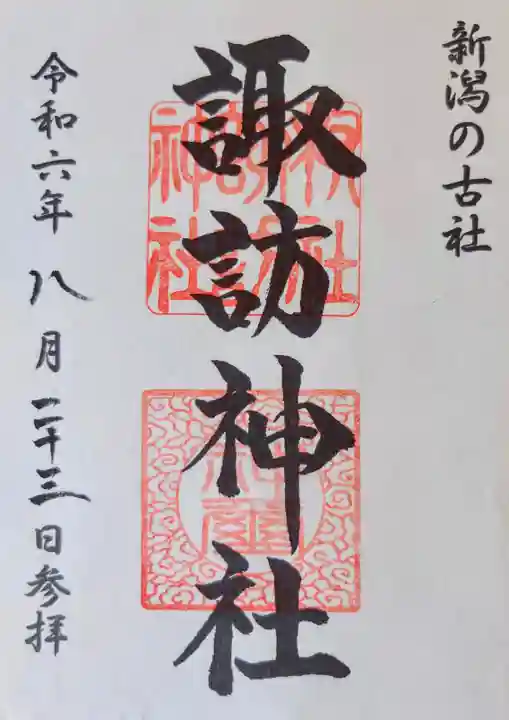 新潟の古社
諏訪神社
令和六年 八月二十三日参拝